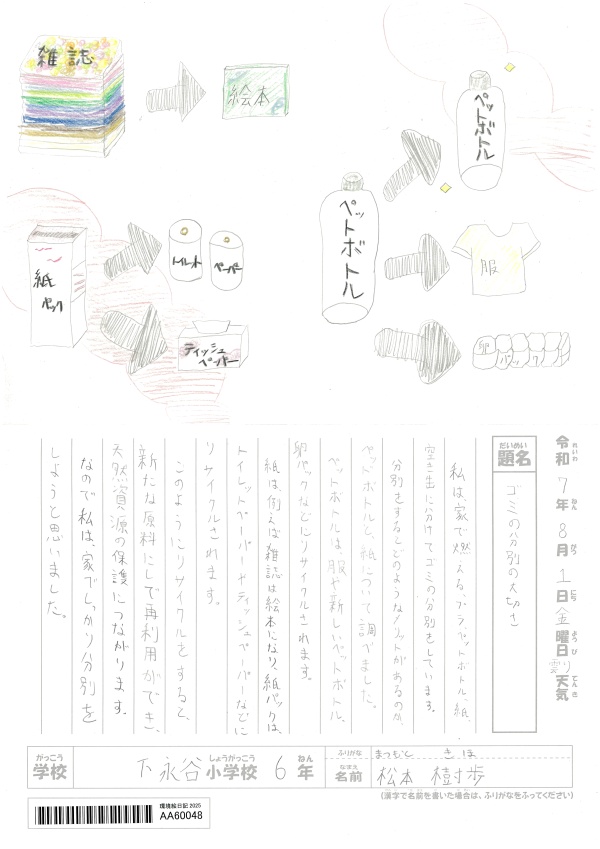 雑誌
絵本
ペットボトル
ペットボトル
服
卵パック
紙パック
トイレット
ペーパー
ティッシュ
ペーパー
令和 7年 8月 1日 金曜日 曇り 天気
れいわ ねん がつ にち ようび てんき
だいめい
題名
ゴミの分別の大切さ
私は、家で燃える、プラ、ペットボトル、紙、
空き缶に分けてゴミの分別をしています。
分別をするとどのようなメリットがあるのか、
ペットボトルと、紙について調べました。
ペットボトルは服や新しいペットボトル、
卵パックなどにリサイクルされます。
紙は、例えば雑誌は絵本になり、紙パックは、
トイレットペーパーやティッシュペーパーなどに
リサイクルされます。
このようにリサイクルをすると、
新たな原料にして再利用ができ、
天然資源の保護につながります。
なので私は、家でしっかり分別を
しようと思いました。
がっこう
学校
下永谷 小学校 6年
しょうがっこう ねん
ふりがな まつもと きほ
なまえ
名前 松本 樹歩
(漢字で名前を書いた場合は、ふりがなをふってください)
環境絵日記 2025
AA60048